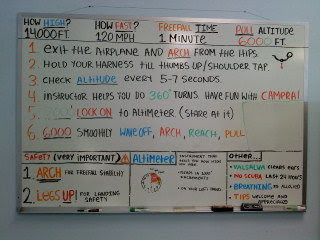 HOW HIGH?
14000 FT.
HOW FAST?
120 MPH
FREEFALL TIME
1 MINUTE
PULL ALTITUDE
6000 FT.
1 EXIT THE AIRPLANE AND ARCH FROM THE HIPS
2. HOLD YOUR HARNESS TILL THUMBS UP/SHOULDER TAP.
3 CHECK ALTITUDE EVERY 5-7 SECONDS.
4 INSTRUCTOR HELPS YOU DO 360° TURNS. HAVE FUN WITH CAMERA!
5. LOCK ON TO ALTIMETER (STARE AT IT)
6. 6,000 SMOOTHLY WAVE OFF, ARCH, REACH, PULL
SAFETY (VERY IMPORTANT)
1 ARCH FOR FREEFALL STABILITY
2 LEGS UP! FOR LANDING SAFETY
ALTIMETER
INSTRUMENT THAT
READS IN 1000'
INCREMENTS
ON YOUR LEFT HAND
OTHER...
VALSALVA CLEARS EARS
NO SCUBA LAST 24 HOURS
BREATHING IS ALLOWED
TIPS WELCOME AND APPRECIATED